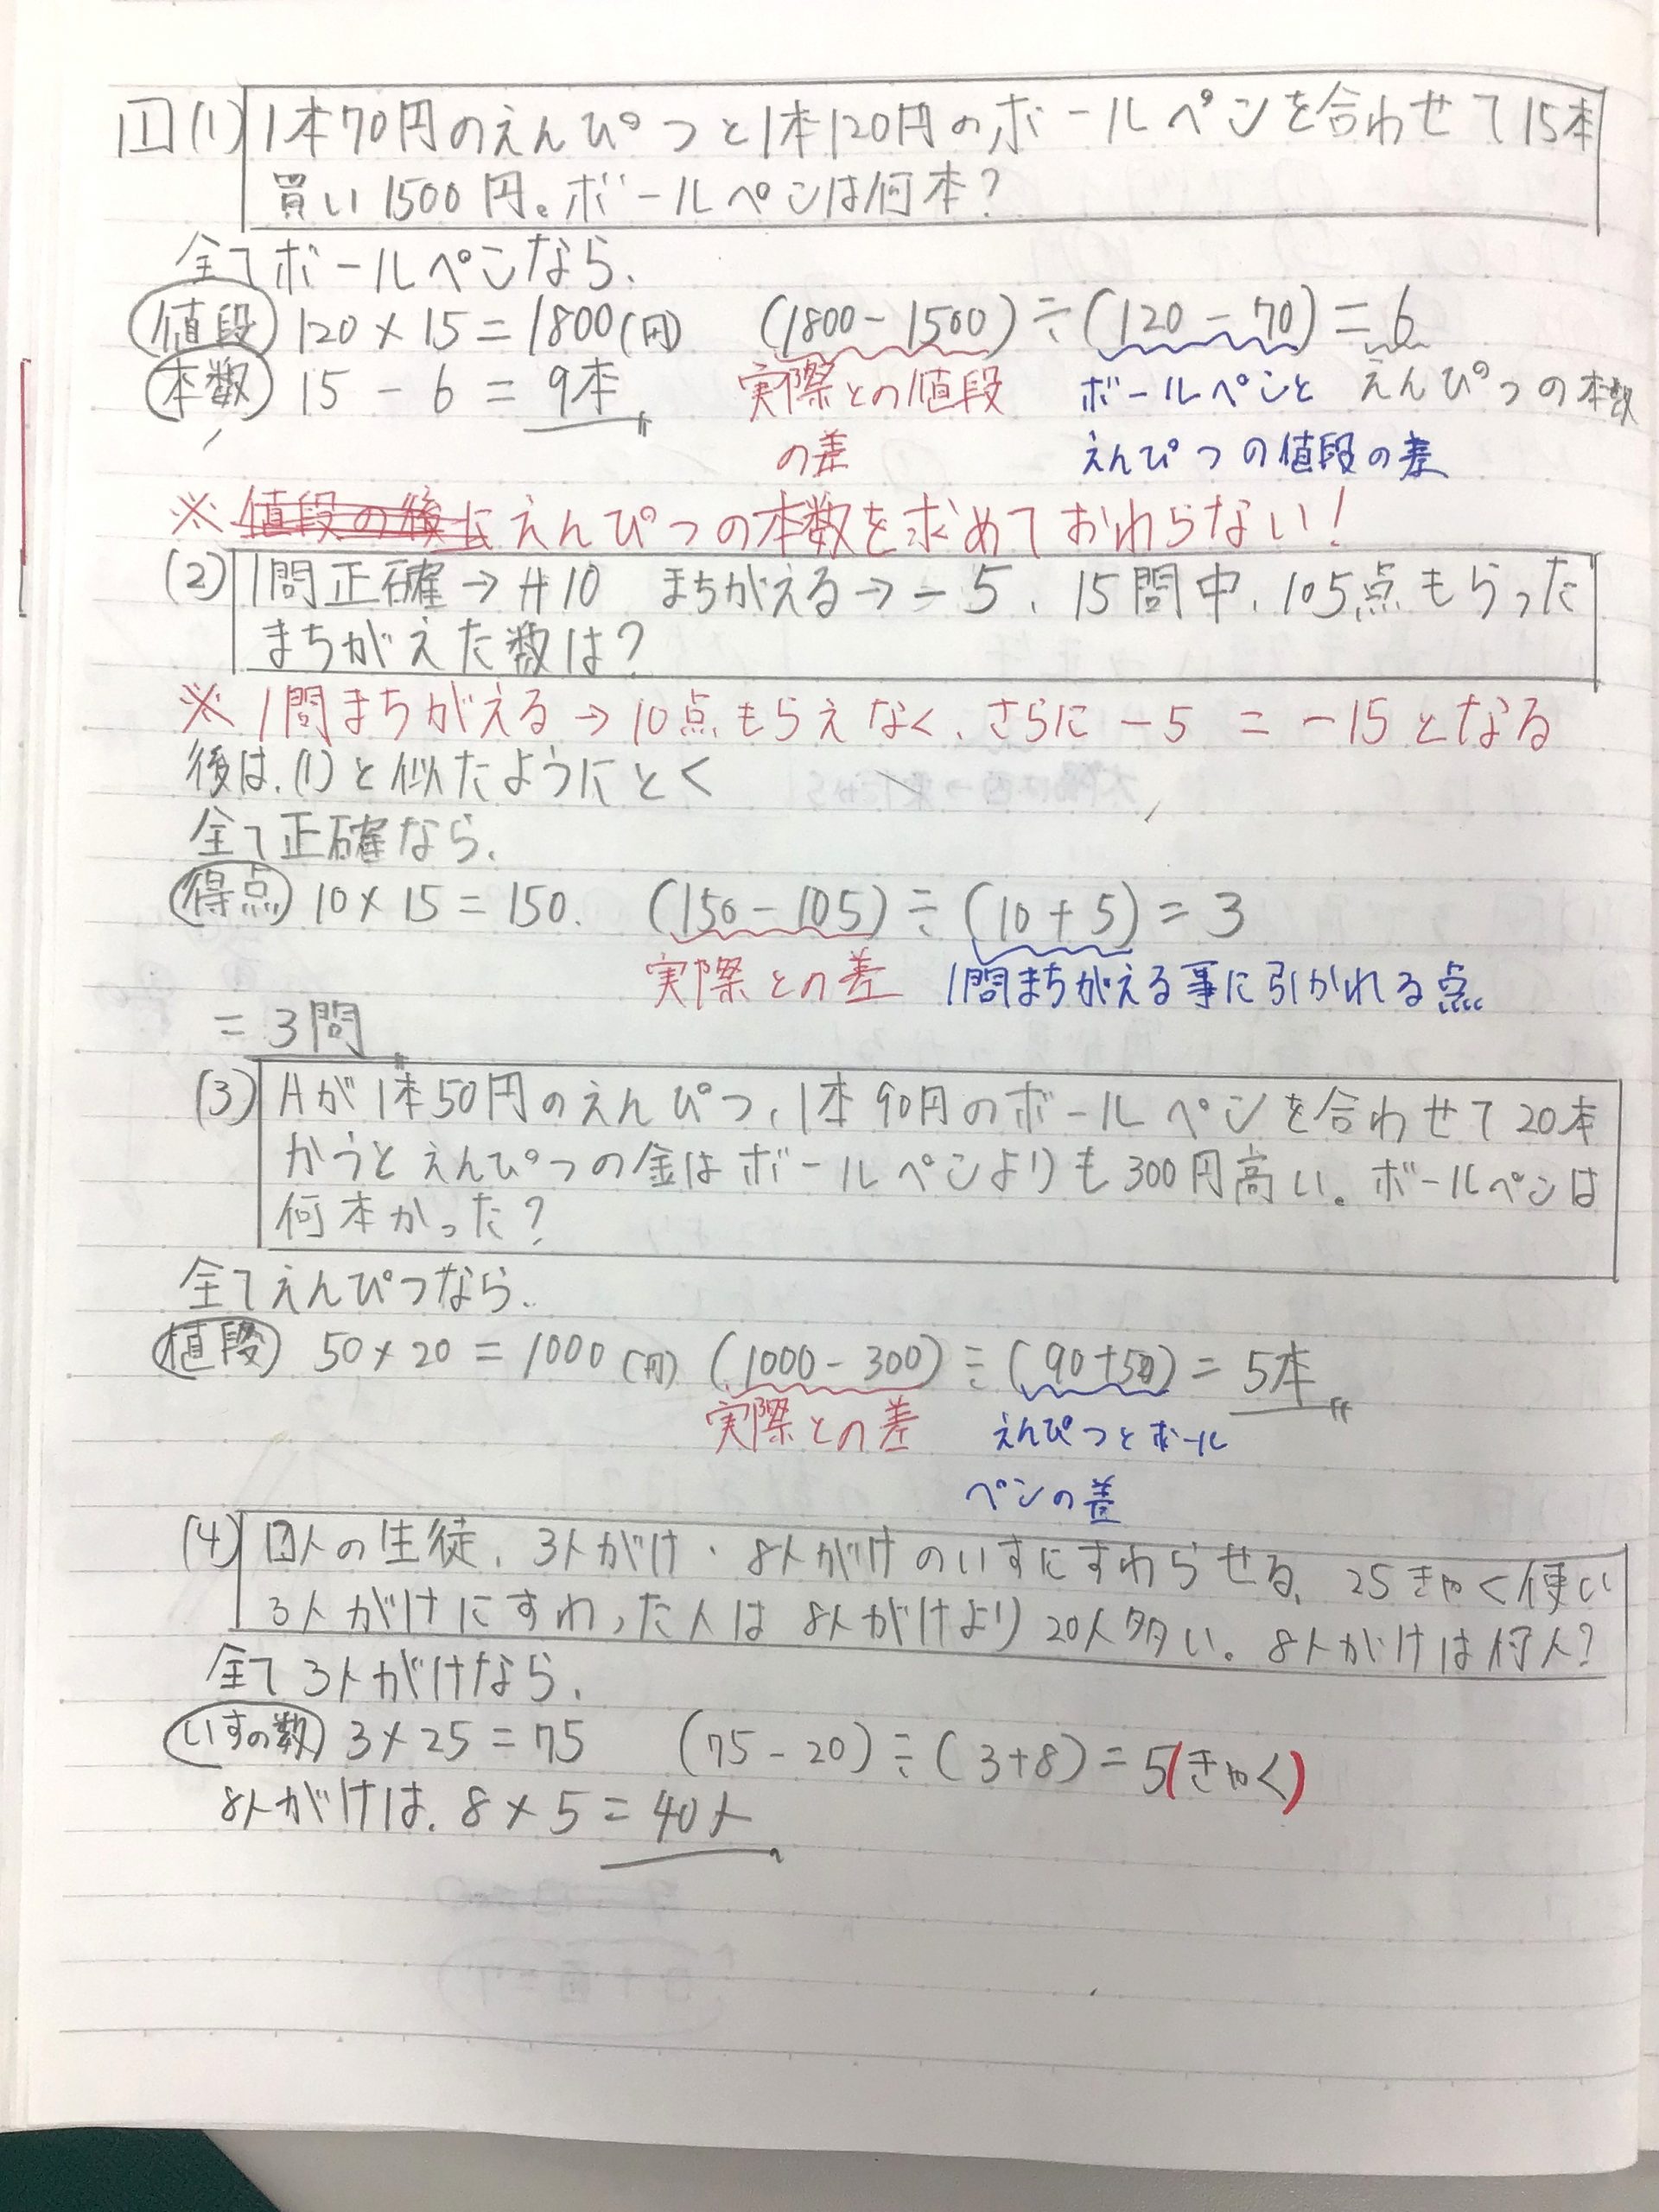 1 (1) 1本70円のえんぴつと1本120円のボールペンを合わせて15本
買い1500円。ボールペンは何本?
全てボールペンなら、
値段 120×15=1800(円) (1800-1500)÷(120-70)=6
本数 15-6=9本 実際との値段 ボールペンと えんぴつの本数
の差 えんぴつの値段の差
※値段の後に えんぴつの本数を求めておわらない!
(2) 1問正確→+10 まちがえる→-5、15問中、105点もらった
まちがえた数は?
※1問まちがえる→10点もらえなく、さらに-5 = -15となる
後は、(1)と似たようにとく
全て正確なら、
得点 10×15=150. (150-105)÷(10+5)=3
実際との差 1問まちがえる事に引かれる点
=3問
(3) Aが1本50円のえんぴつ、1本90円のボールペンを合わせて20本
かうとえんぴつの金はボールペンよりも300円高い。ボールペンは
何本かった?
全てえんぴつなら、
値段 50×20=1000(円) (1000-300)÷(90+50)=5本
実際との差 えんぴつとボール
ペンの差
(4) □人の生徒、3人がけ・8人がけのいすにすわらせる、25きゃく使い
3人がけにすわった人は8人がけより20人多い。8人がけは何人?
全て3人がけなら、
いすの数 3×25=75 (75-20)÷(3+8)=5(きゃく)
8人がけは、8×5=40人